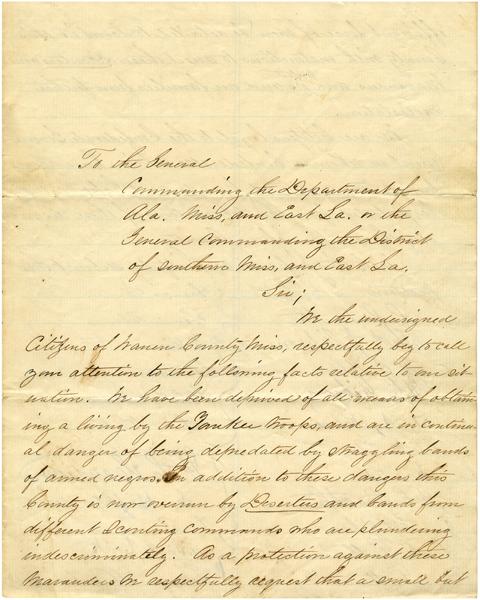 To the General
Commanding the Department of
Ala. Miss, and East La. or the
General Commanding the District
of southern Miss, and East La.
Sir;
We the undersigned
Citizens of Warren County, Miss, respectfully beg to call
your attention to the following facts relative to our sit-
uation. We have been deprived of all means of obtain-
ing a living by the Yankee troops, and are in continu-
al danger of being depredated by straggling bands
of armed negros, In addition to these dangers this
County is now overrun by Deserters and bands from
different Scouting commands who are plundering
indescriminately. As a protection against these
Marauders we respectfully request that a small but